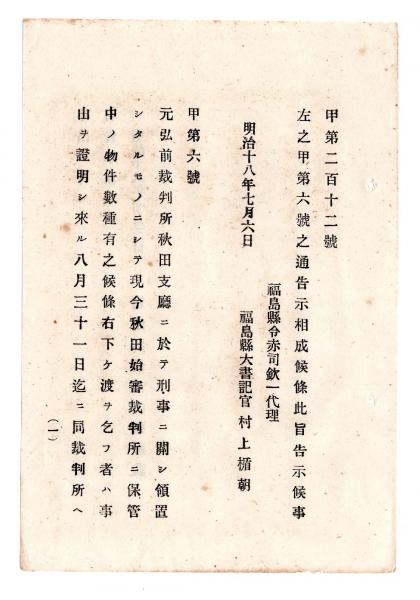 甲第二百十二號
左之甲第六號之通告示相成候條此旨告示候事
福島縣令赤司欽一代理
明治十八年七月六日　福島縣大書記官 村上楯朝
甲第六號
元弘前裁判所秋田支廳ニ於テ刑事ニ關シ領置
シタルモノニシテ現今秋田始審裁判所ニ保管
中ノ物件數種有之候條右下ケ渡ヲ乞フ者ハ事
由ヲ證明シ來ル八月三十一日迄ニ同裁判所ヘ
（一）